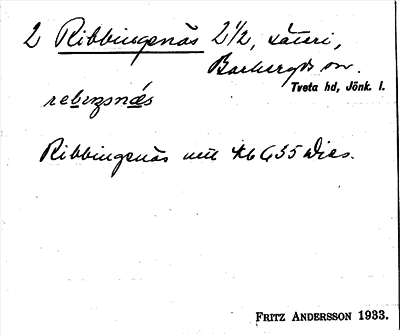 2 Ribbingsnäs 2 1/2, säteri,
Barkeryds sn.
Tveta hd, Jönk. l.
rebıŋsnäs
Ribbingsnäs
FRITZ ANDERSSON 1933.